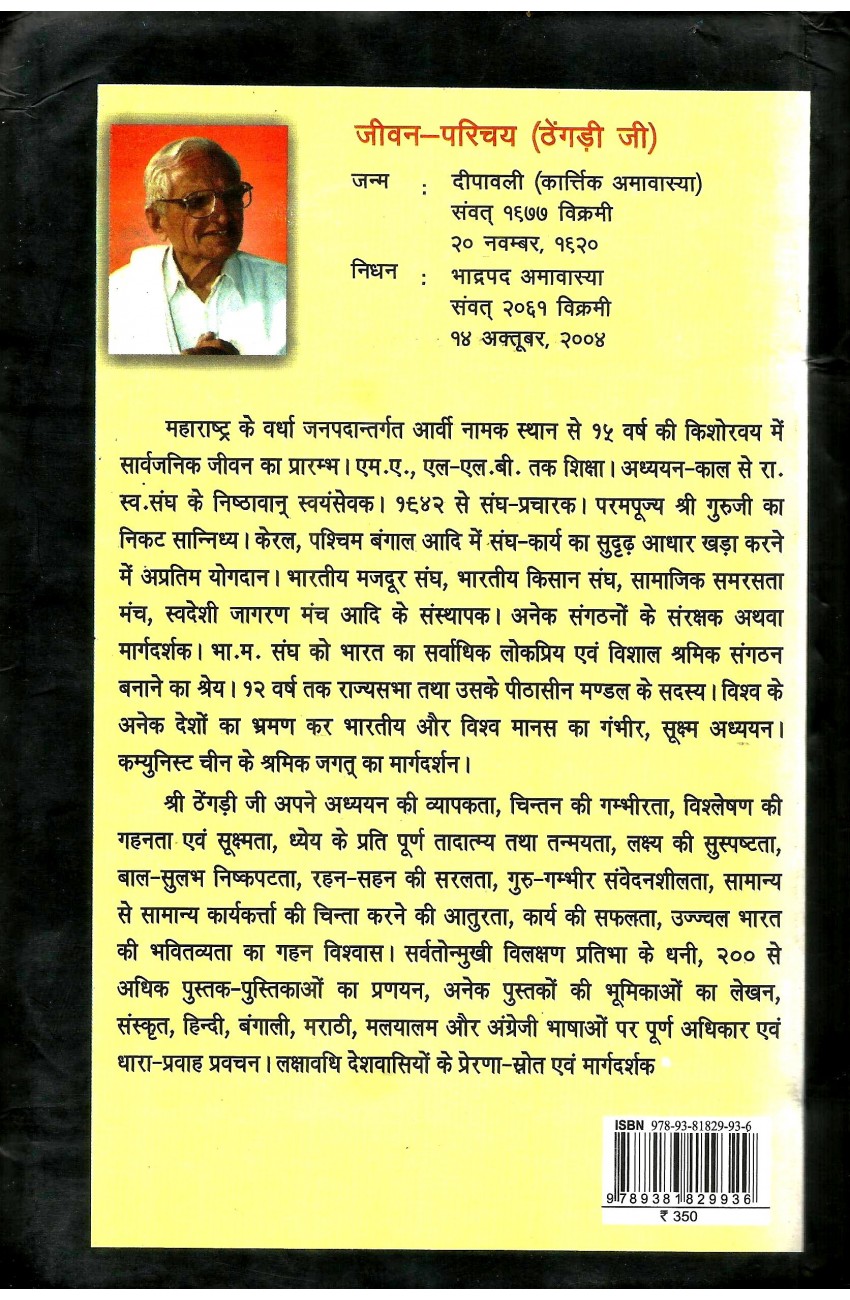 जीवन–परिचय (ठेंगड़ी जी)
जन्म : दीपावली (कार्त्तिक अमावास्या)
संवत् १९७७ विक्रमी
२० नवम्बर, १९२०
निधन : भाद्रपद अमावास्या
संवत् २०६१ विक्रमी
१४ अक्तूबर, २००४
महाराष्ट्र के वर्धा जनपदान्तर्गत आर्वी नामक स्थान से १५ वर्ष की किशोरवय में
सार्वजनिक जीवन का प्रारम्भ। एम.ए., एल-एल.बी. तक शिक्षा। अध्ययन-काल से रा.
स्व.संघ के निष्ठावान् स्वयंसेवक। १९४२ से संघ-प्रचारक। परमपूज्य श्री गुरुजी का
निकट सान्निध्य। केरल, पश्चिम बंगाल आदि में संघ-कार्य का सुदृढ़ आधार खड़ा करने
में अप्रतिम योगदान। भारतीय मजदूर संघ, भारतीय किसान संघ, सामाजिक समरसता
मंच, स्वदेशी जागरण मंच आदि के संस्थापक। अनेक संगठनों के संरक्षक अथवा
मार्गदर्शक। भा.म. संघ को भारत का सर्वाधिक लोकप्रिय एवं विशाल श्रमिक संगठन
बनाने का श्रेय। १२ वर्ष तक राज्यसभा तथा उसके पीठासीन मण्डल के सदस्य। विश्व के
अनेक देशों का भ्रमण कर भारतीय और विश्व मानस का गंभीर, सूक्ष्म अध्ययन।
कम्युनिस्ट चीन के श्रमिक जगत् का मार्गदर्शन।
श्री ठेंगड़ी जी अपने अध्ययन की व्यापकता, चिन्तन की गम्भीरता, विश्लेषण की
गहनता एवं सूक्ष्मता, ध्येय के प्रति पूर्ण तादात्म्य तथा तन्मयता, लक्ष्य की सुस्पष्टता,
बाल-सुलभ निष्कपटता, रहन-सहन की सरलता, गुरु-गम्भीर संवेदनशीलता, सामान्य
से सामान्य कार्यकर्त्ता की चिन्ता करने की आतुरता, कार्य की सफलता, उज्ज्वल भारत
की भवितव्यता का गहन विश्वास। सर्वतोन्मुखी विलक्षण प्रतिभा के धनी, २०० से
अधिक पुस्तक-पुस्तिकाओं का प्रणयन, अनेक पुस्तकों की भूमिकाओं का लेखन,
संस्कृत, हिन्दी, बंगाली, मराठी, मलयालम और अंग्रेजी भाषाओं पर पूर्ण अधिकार एवं
धारा-प्रवाह प्रवचन। लक्षावधि देशवासियों के प्रेरणा-स्रोत एवं मार्गदर्शक
ISBN 978-93-81829-93-6
9 789381 829936
₹ 350